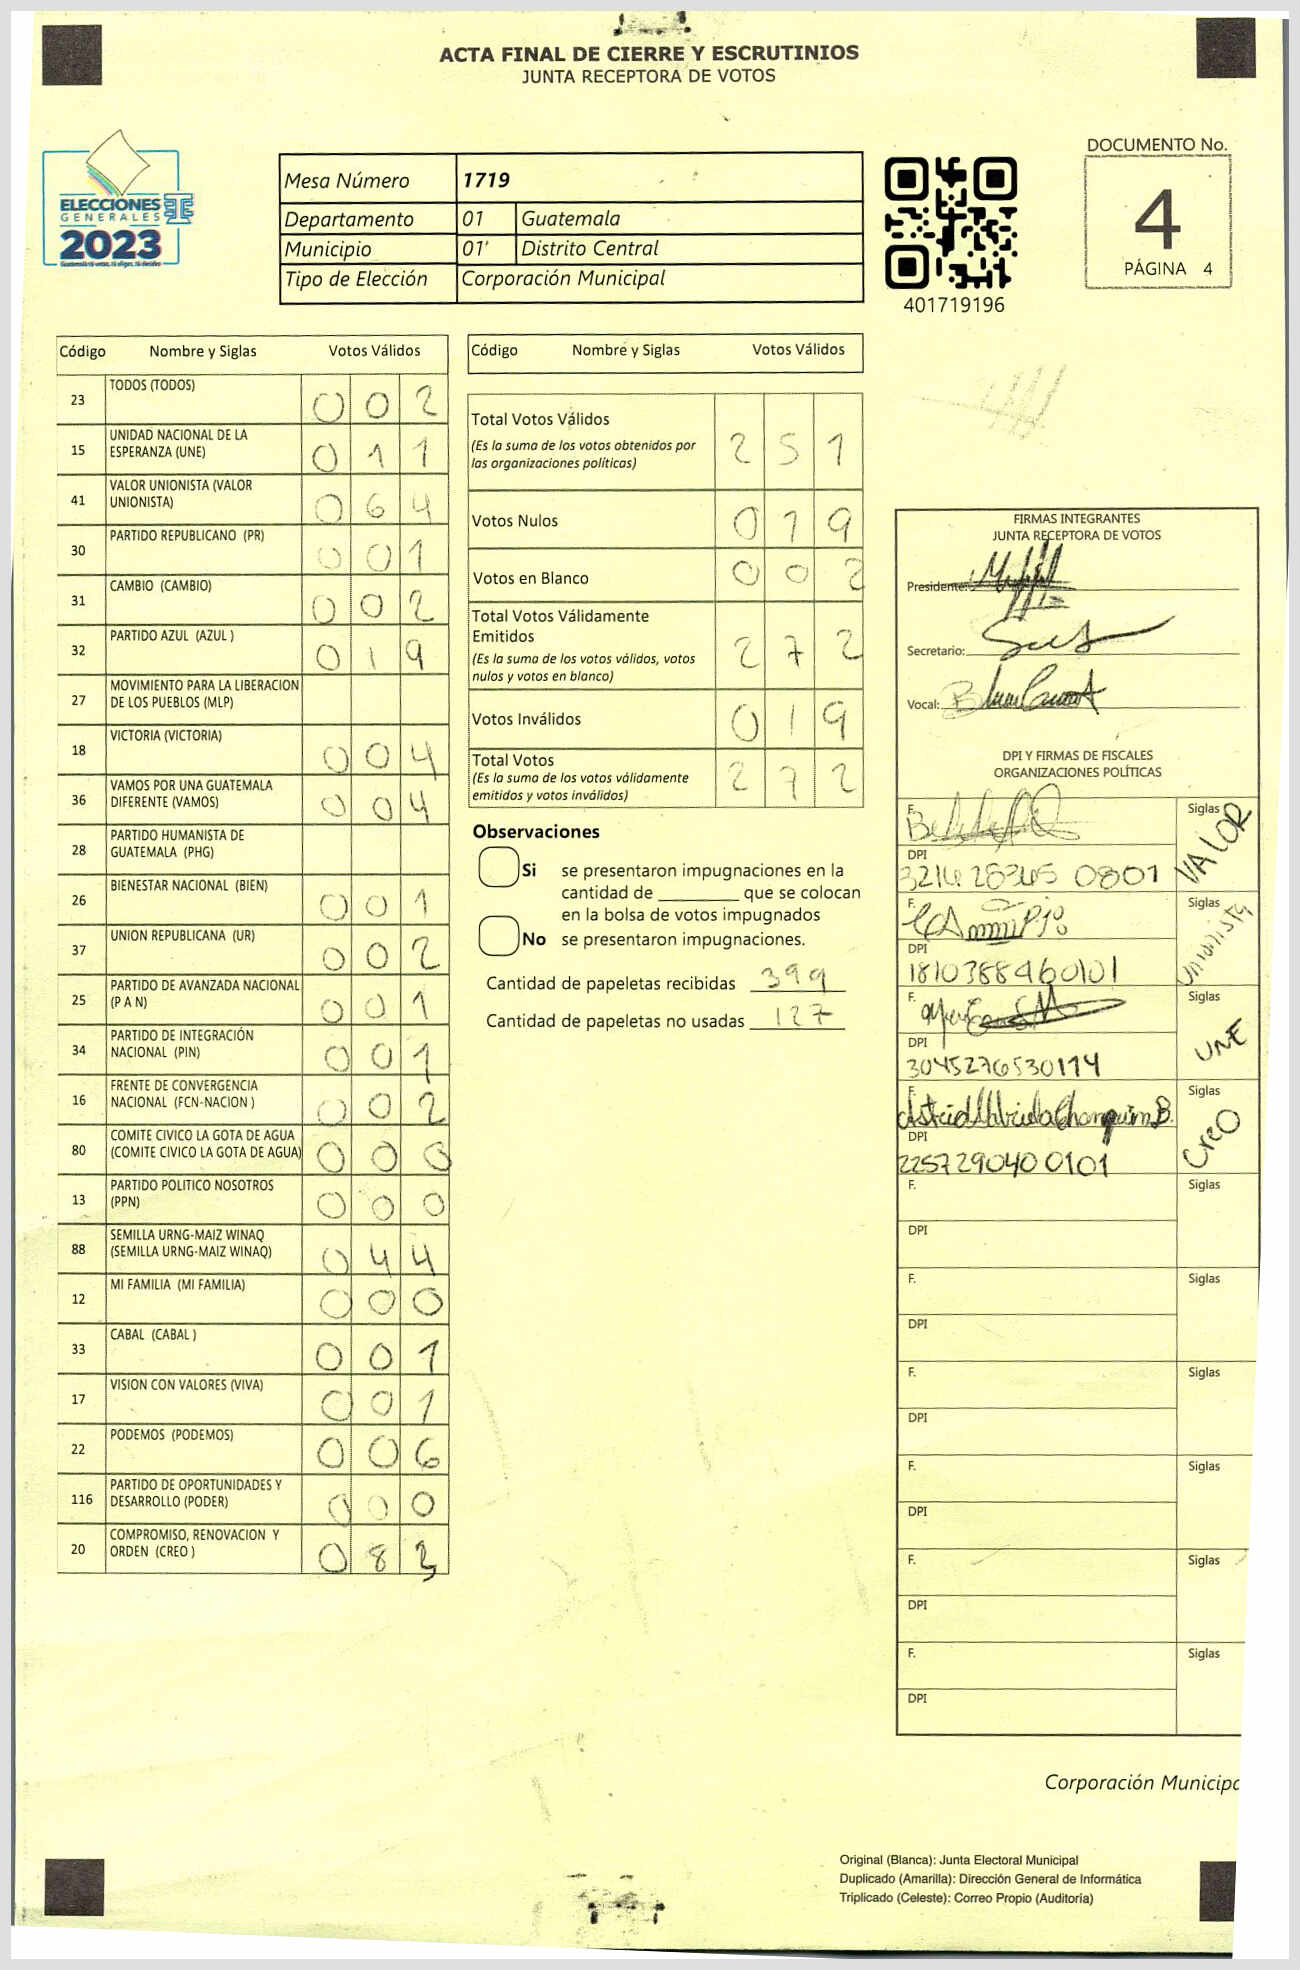 ACTA FINAL DE CIERRE Y ESCRUTINIOS
JUNTA RECEPTORA DE VOTOS
ELECCIONES
GENERALES
2023
Mesa Número 1719
Departamento 01 Guatemala
Municipio 01' Distrito Central
Tipo de Elección Corporación Municipal
401719196
DOCUMENTO No.
4
PÁGINA 4
Código Nombre y Siglas Votos Válidos
23 TODOS (TODOS) 0 0 2
15 UNIDAD NACIONAL DE LA
ESPERANZA (UNE) 0 1 1
41 VALOR UNIONISTA (VALOR
UNIONISTA) 0 6 4
30 PARTIDO REPUBLICANO (PR) 0 0 1
31 CAMBIO (CAMBIO) 0 0 2
32 PARTIDO AZUL (AZUL ) 0 1 9
27 MOVIMIENTO PARA LA LIBERACION
DE LOS PUEBLOS (MLP)
18 VICTORIA (VICTORIA) 0 0 4
36 VAMOS POR UNA GUATEMALA
DIFERENTE (VAMOS) 0 0 4
28 PARTIDO HUMANISTA DE
GUATEMALA (PHG)
26 BIENESTAR NACIONAL (BIEN) 0 0 1
37 UNION REPUBLICANA (UR) 0 0 2
25 PARTIDO DE AVANZADA NACIONAL
(P A N) 0 0 1
34 PARTIDO DE INTEGRACIÓN
NACIONAL (PIN) 0 0 1
16 FRENTE DE CONVERGENCIA
NACIONAL (FCN-NACION ) 0 0 2
80 COMITE CIVICO LA GOTA DE AGUA
(COMITE CIVICO LA GOTA DE AGUA) 0 0 0
13 PARTIDO POLITICO NOSOTROS
(PPN) 0 0 0
88 SEMILLA URNG-MAIZ WINAQ
(SEMILLA URNG-MAIZ WINAQ) 0 4 4
12 MI FAMILIA (MI FAMILIA) 0 0 0
33 CABAL (CABAL ) 0 0 1
17 VISION CON VALORES (VIVA) 0 0 1
22 PODEMOS (PODEMOS) 0 0 6
116 PARTIDO DE OPORTUNIDADES Y
DESARROLLO (PODER) 0 0 0
20 COMPROMISO, RENOVACION Y
ORDEN (CREO ) 0 8
Código Nombre y Siglas Votos Válidos
Total Votos Válidos 2 5 1
(Es la suma de los votos obtenidos por
las organizaciones políticas)
Votos Nulos 0 1 9
Votos en Blanco 0 0 2
Total Votos Válidamente
Emitidos 2 7 2
(Es la suma de los votos válidos, votos
nulos y votos en blanco)
Votos Inválidos 0 1 9
Total Votos 2 7 2
(Es la suma de los votos válidamente
emitidos y votos inválidos)
Observaciones
Si se presentaron impugnaciones en la
cantidad de ________ que se colocan
en la bolsa de votos impugnados
No se presentaron impugnaciones.
Cantidad de papeletas recibidas 399
Cantidad de papeletas no usadas 127
FIRMAS INTEGRANTES
JUNTA RECEPTORA DE VOTOS
Presidente:
Secretario:
Vocal:
DPI Y FIRMAS DE FISCALES
ORGANIZACIONES POLÍTICAS
F. Siglas VALOR
DPI
3214 28365 0801
F. Siglas Unionista
DPI
1810388460101
F. Siglas UNE
DPI
3045276530114
F. Siglas CreO
DPI
2257290400101
F. Siglas
DPI
F. Siglas
DPI
F. Siglas
DPI
F. Siglas
DPI
F. Siglas
DPI
F. Siglas
DPI
Corporación Municipa
Original (Blanca): Junta Electoral Municipal
Duplicado (Amarilla): Dirección General de Informática
Triplicado (Celeste): Correo Propio (Auditoría)